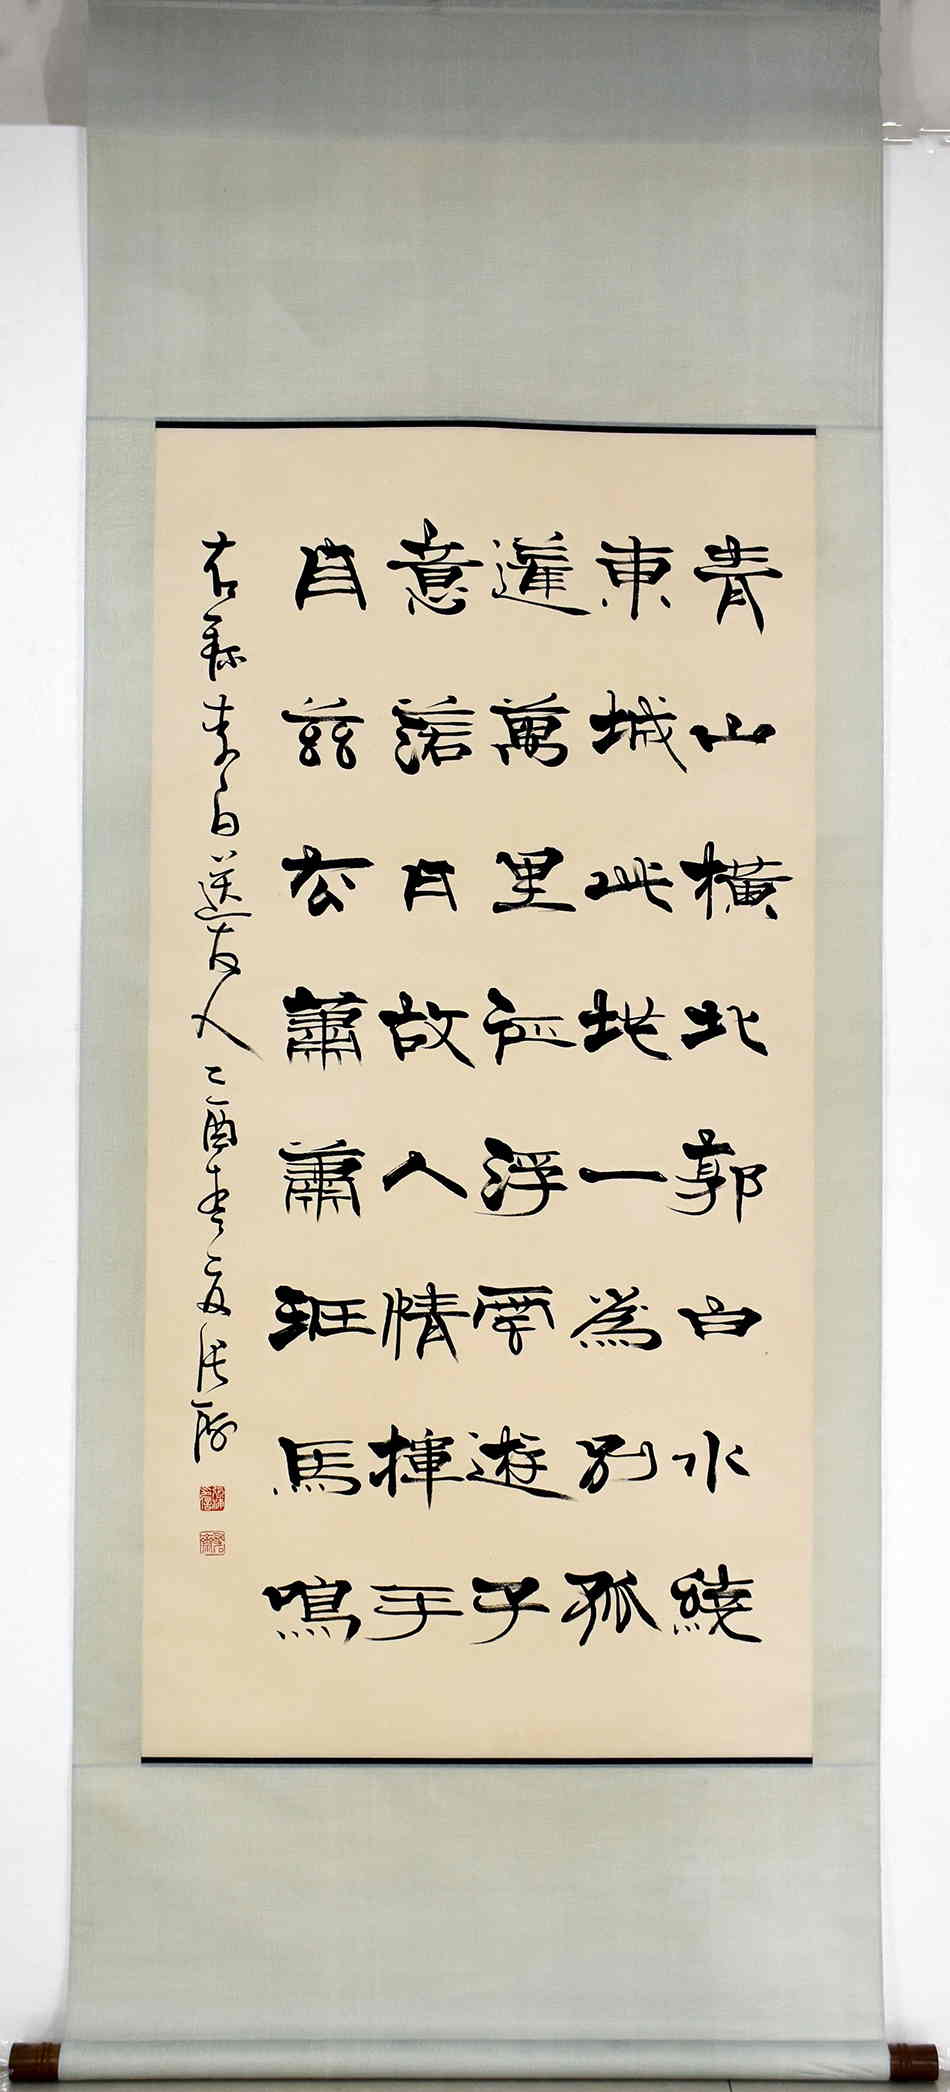 青山橫北郭白水繞
東城此地一為別孤
蓬萬里征浮雲遊子
意落日故人情揮手
自茲去蕭蕭班馬鳴
右錄李白送友人乙酉春